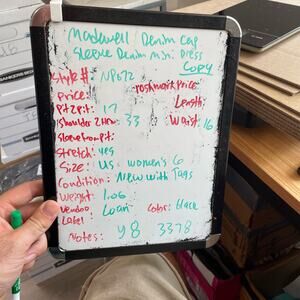 Madewell Denim Cap
Sleeve Denim Mini Dress
Copy
Style#: NP672
Poshmark Price:
Price:
Length:
Pit2Pit: 17
Shoulder 2 Hem: 33
Waist: 16
Sleeve from pit:
Stretch: yes
Size: US women's 6
Condition: New with Tags
Weight: 1.06
Vendoo Label
Color: black
Notes: y8 3378
BANKERS BOX